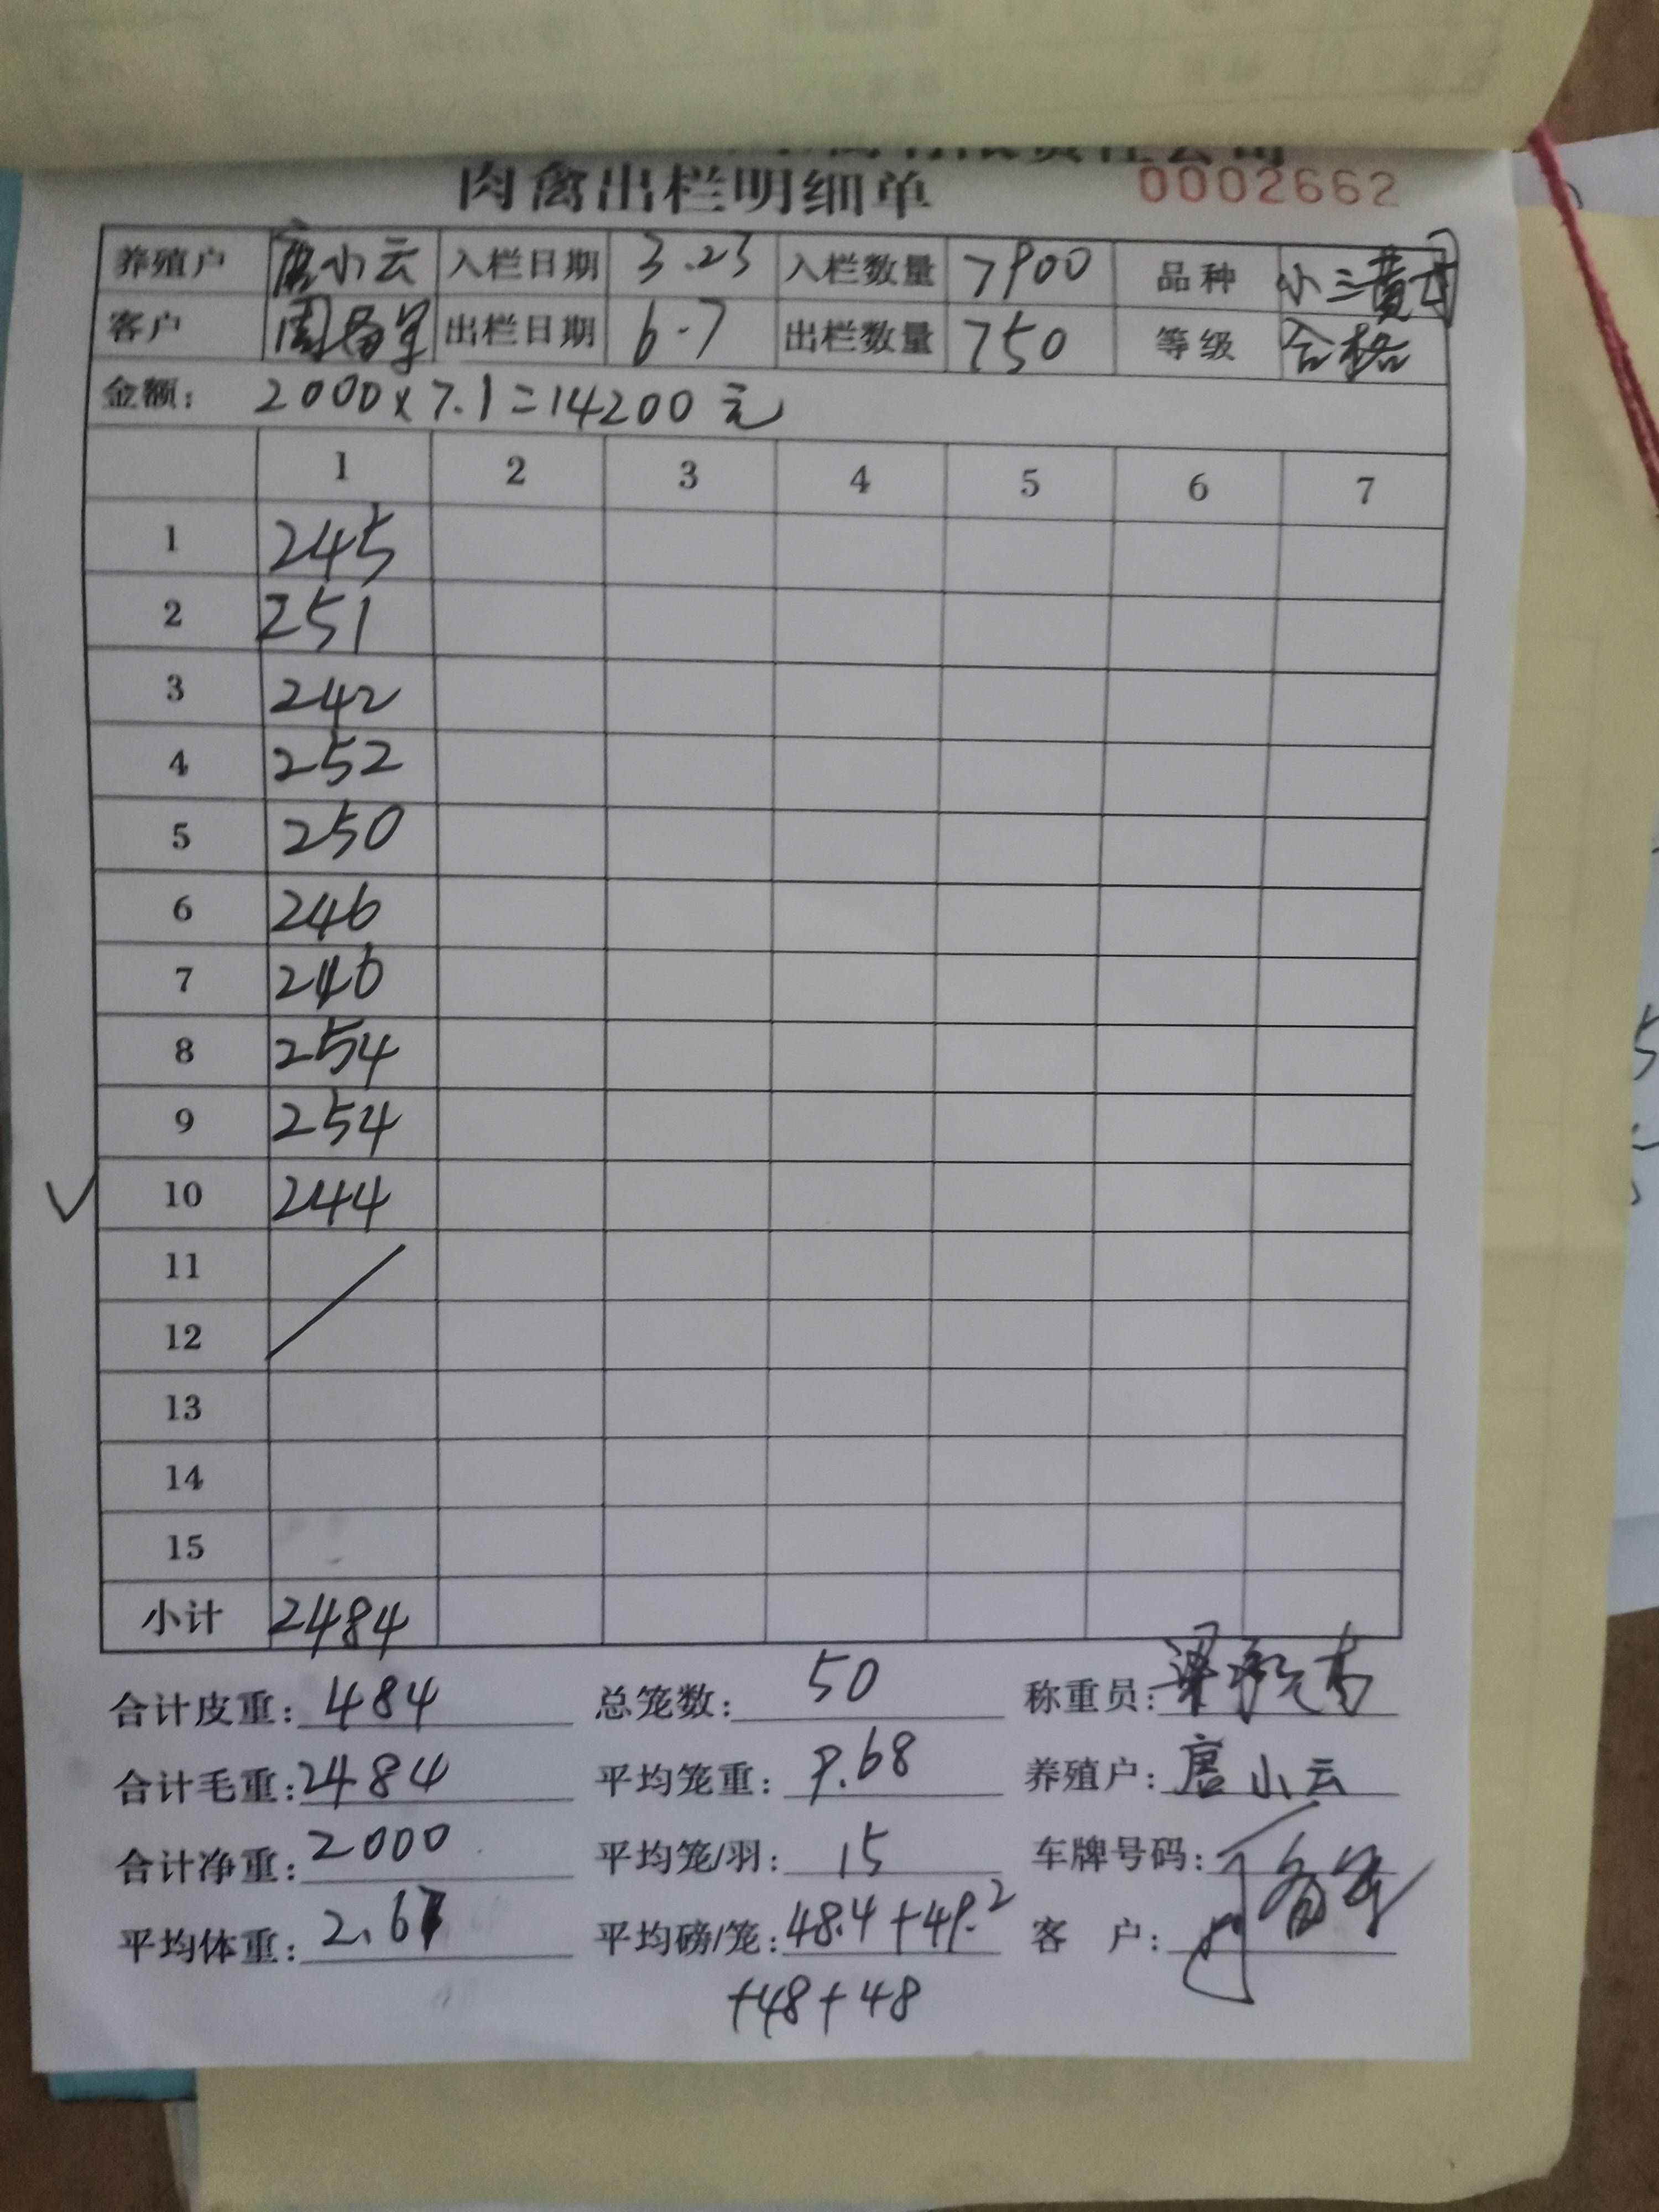 肉禽出栏明细单 0002662
养殖户 唐小云 入栏日期 3.23 入栏数量 7900 品种 小三黄
客户 周 出栏日期 6.7 出栏数量 750 等级 合格
金额: 2000×7.1=14200元
1 2 3 4 5 6 7
1 245
2 251
3 242
4 252
5 250
6 246
7 246
8 254
9 254
10 244
11
12
13
14
15
小计 2484
合计皮重: 484 总笼数: 50 称重员: 梁
合计毛重: 2484 平均笼重: 9.68 养殖户: 唐小云
合计净重: 2000 平均笼/羽: 15 车牌号码:
平均体重: 2.67 平均磅/笼: 48.4+49.2 客 户:
+48+48